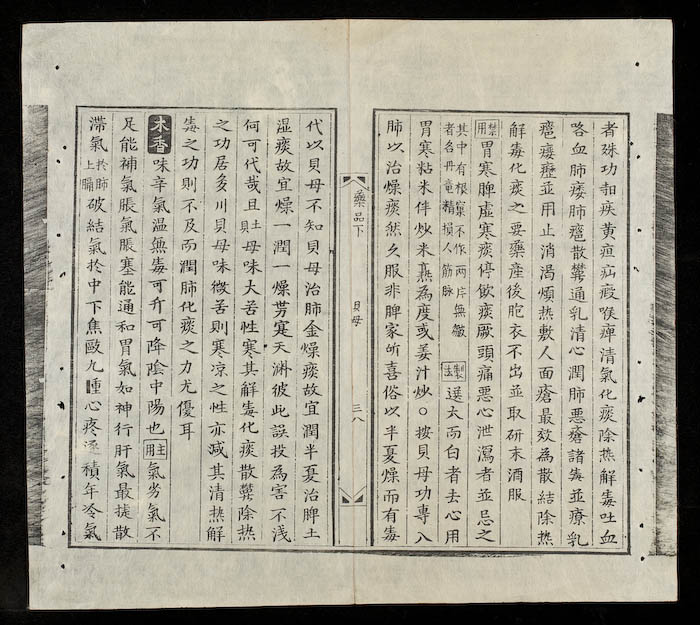 者殊功却疾黄疸疝瘕喉痺清氣化痰除热解毒吐血
咯血肺痿肺癰散欝通乳清心潤肺悪瘡諸毒並療乳
癰瘿癧並用止消渴煩热敷人面瘡最效為散結除热
解毒化痰之要藥産後胞衣不出並取研末酒服
禁用胃寒脾虚寒痰停飲痰厥頭痛悪心泄瀉者並忌之
其中有根窠不作两片無皺
者名丹竜精损人筋脉
製法選大而白者去心用
胃寒粘米伴炒米熏為度或姜汁炒〇按貝母功專入
肺以治燥痰然久服非脾家所喜俗以半夏燥而有毒
藥品下
貝母
三八
代以貝母不知貝母治肺金燥痰故宜潤半夏治脾土
湿痰故宜燥一潤一燥势寔天渊彼此誤投為害不浅
何可代哉且土貝母味大苦性寒其解毒化痰散欝除热
之功居多川貝母味微苦則寒凉之性亦减其清热解
毒之功則不及而潤肺化痰之力尤優耳
木香味辛氣温無毒可升可降陰中陽也主用氣劣氣不
足能補氣脹氣塞能通和胃氣如神行肝氣最捷散
滞氣於肺上膈破結氣於中下焦歐九種心疼逐積年冷氣